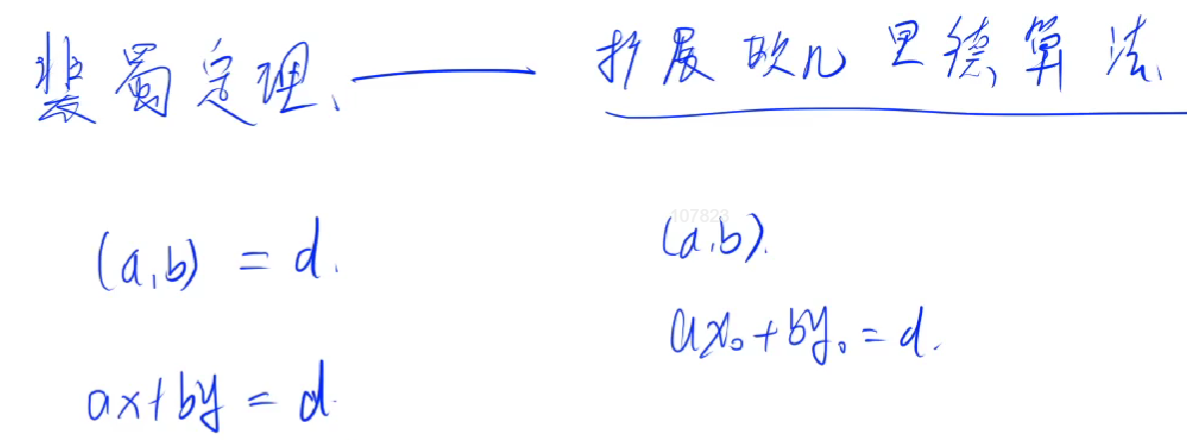 裴蜀定理、—— 扩展欧几里德算法、
(a,b) = d.
ax+by = d.
107823
(a,b).
ax₀+by₀=d.